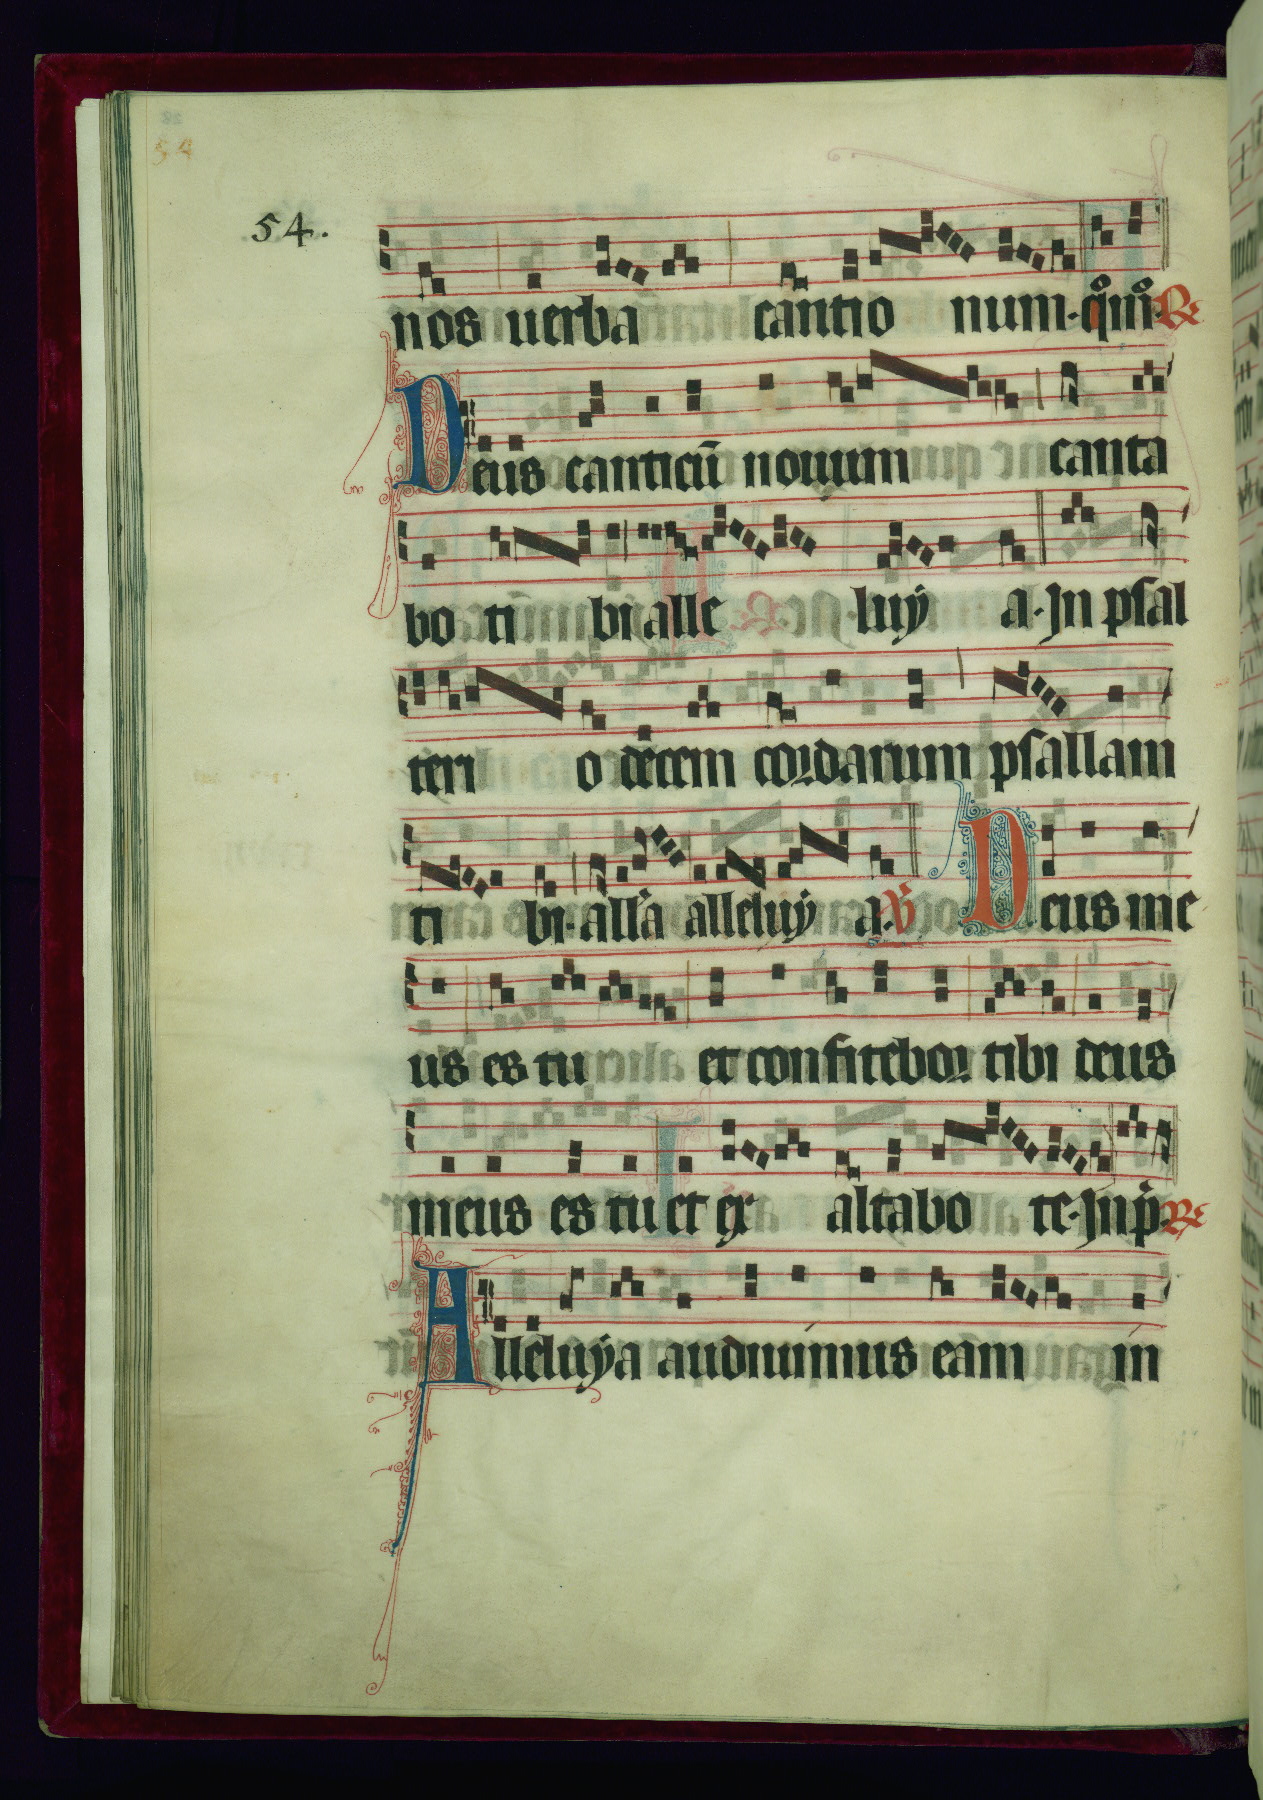 54
54.
nos uerba cantio num. qm̄. ℟
Deus canticū nouum canta
bo ti bi alle luÿ a. Jn psal
teri o decem cordarum psallam
ti bi. all'a alleluÿ a. ℣ Deus me
us es tu et confitebor tibi deus
meus es tu et ex altabo te. Jn p̄. ℟
Alleluÿa audiuimus eam in